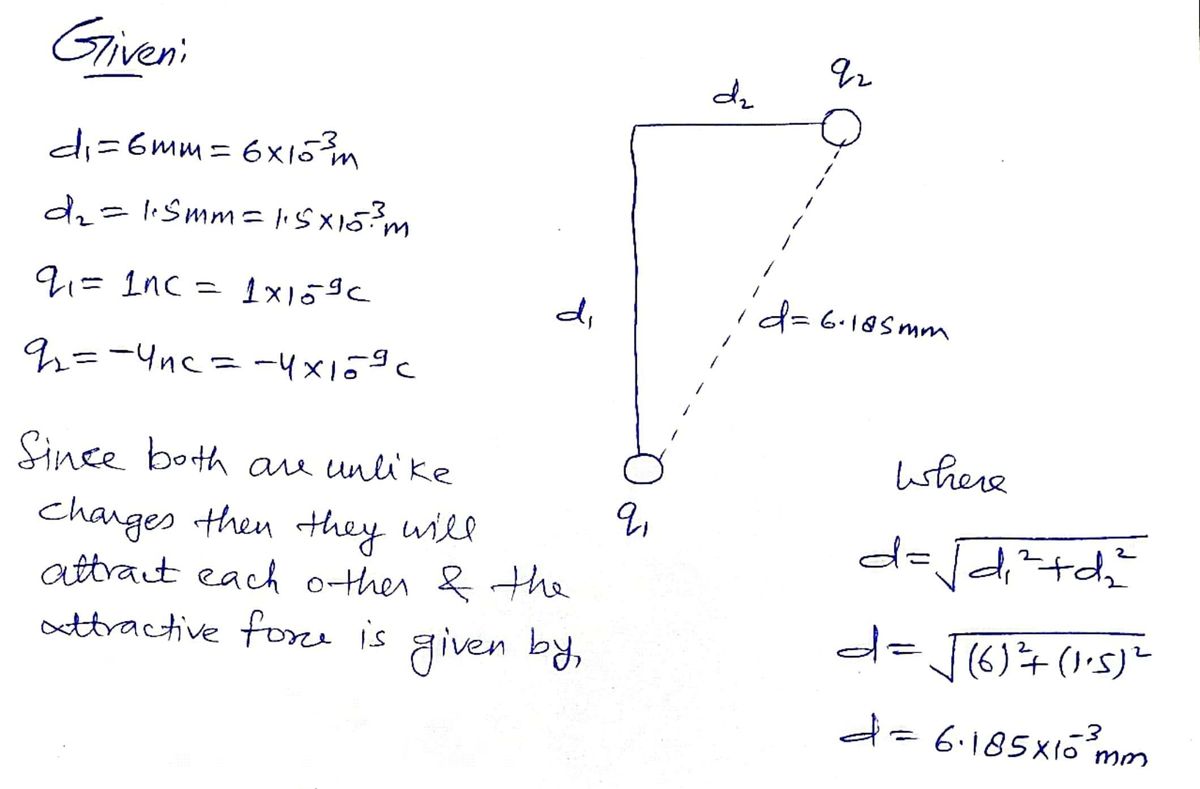 Given:
d₁ = 6mm = 6×10⁻³m
d₂ = 1.5mm = 1.5×10⁻³m
q₁ = 1nc = 1×10⁻⁹c
q₂ = -4nc = -4×10⁻⁹c
Since both are unlike
charges then they will
attract each other & the
attractive force is given by,
q₂
d₂
d₁
d = 6.185mm
q₁
where
d = √d₁²+d₂²
d = √(6)²+(1.5)²
d = 6.185×10⁻³mm